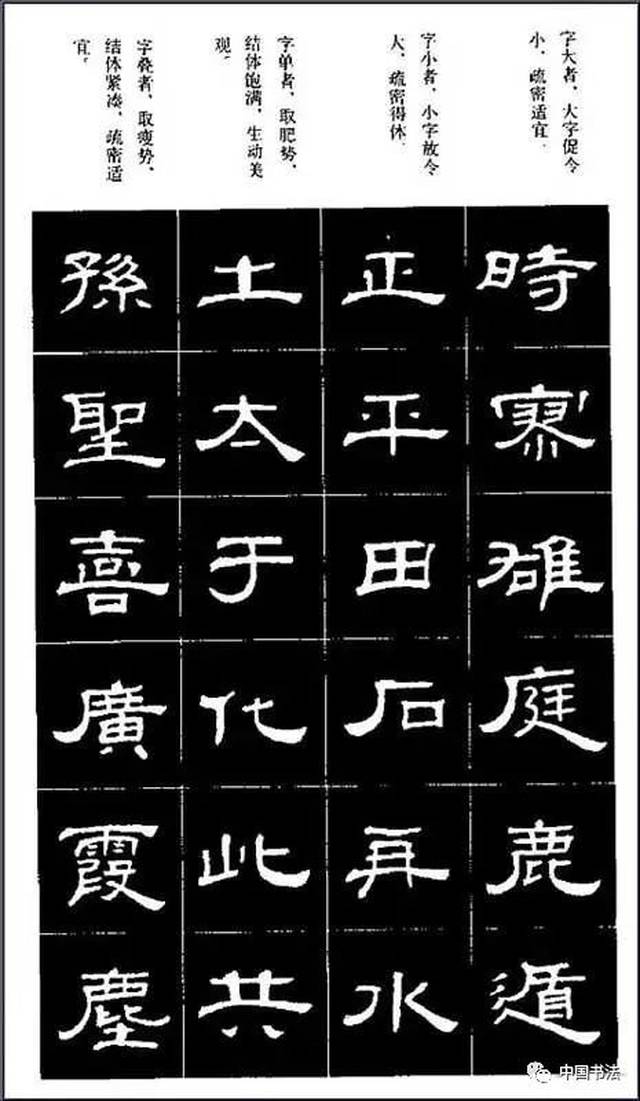 字大者，大字促令
小，疏密适宜。
字小者，小字放令
大，疏密得体。
字单者，取肥势，
结体饱满，生动美
观。
字叠者，取瘦势，
结体紧凑，疏密适
宜。
時雄庭鹿遁
正平田石再水
土太于化此共
孫聖喜廣霞塵
中国书法